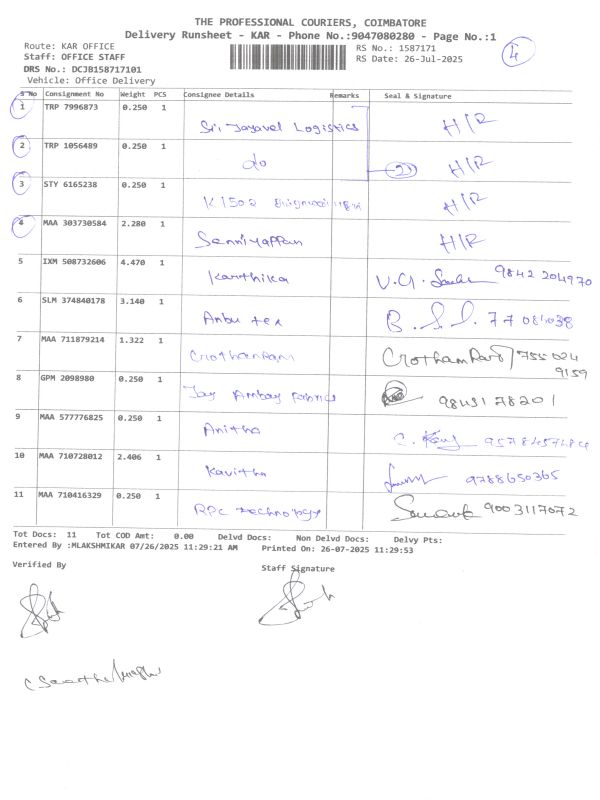 THE PROFESSIONAL COURIERS, COIMBATORE
Delivery Runsheet - KAR - Phone No.:9047080280 - Page No.:1
Route: KAR OFFICE RS No.: 1587171 4
Staff: OFFICE STAFF RS Date: 26-Jul-2025
DRS No.: DCJB158717101
Vehicle: Office Delivery
S No Consignment No Weight PCS Consignee Details Remarks Seal & Signature
1 TRP 7996873 0.250 1
Sri Jayavel Logistics H/R
2 TRP 1056489 0.250 1
do H/R
3 STY 6165238 0.250 1
H/R
4 MAA 303730584 2.280 1
Senniyappan H/R
5 IXM 508732606 4.470 1
Karthika 9842 204970
6 SLM 374840178 3.140 1
Anbu tex
7 MAA 711879214 1.322 1
8 GPM 2098980 0.250 1
Jay Ambay Fabrics 9843178201
9 MAA 577776825 0.250 1
Anitha
10 MAA 710728012 2.406 1
Kavitha 9788650365
11 MAA 710416329 0.250 1
RPC technology 9003117072
Tot Docs: 11 Tot COD Amt: 0.00 Delvd Docs: Non Delvd Docs: Delvy Pts:
Entered By :MLAKSHMIKAR 07/26/2025 11:29:21 AM Printed On: 26-07-2025 11:29:53
Verified By Staff Signature